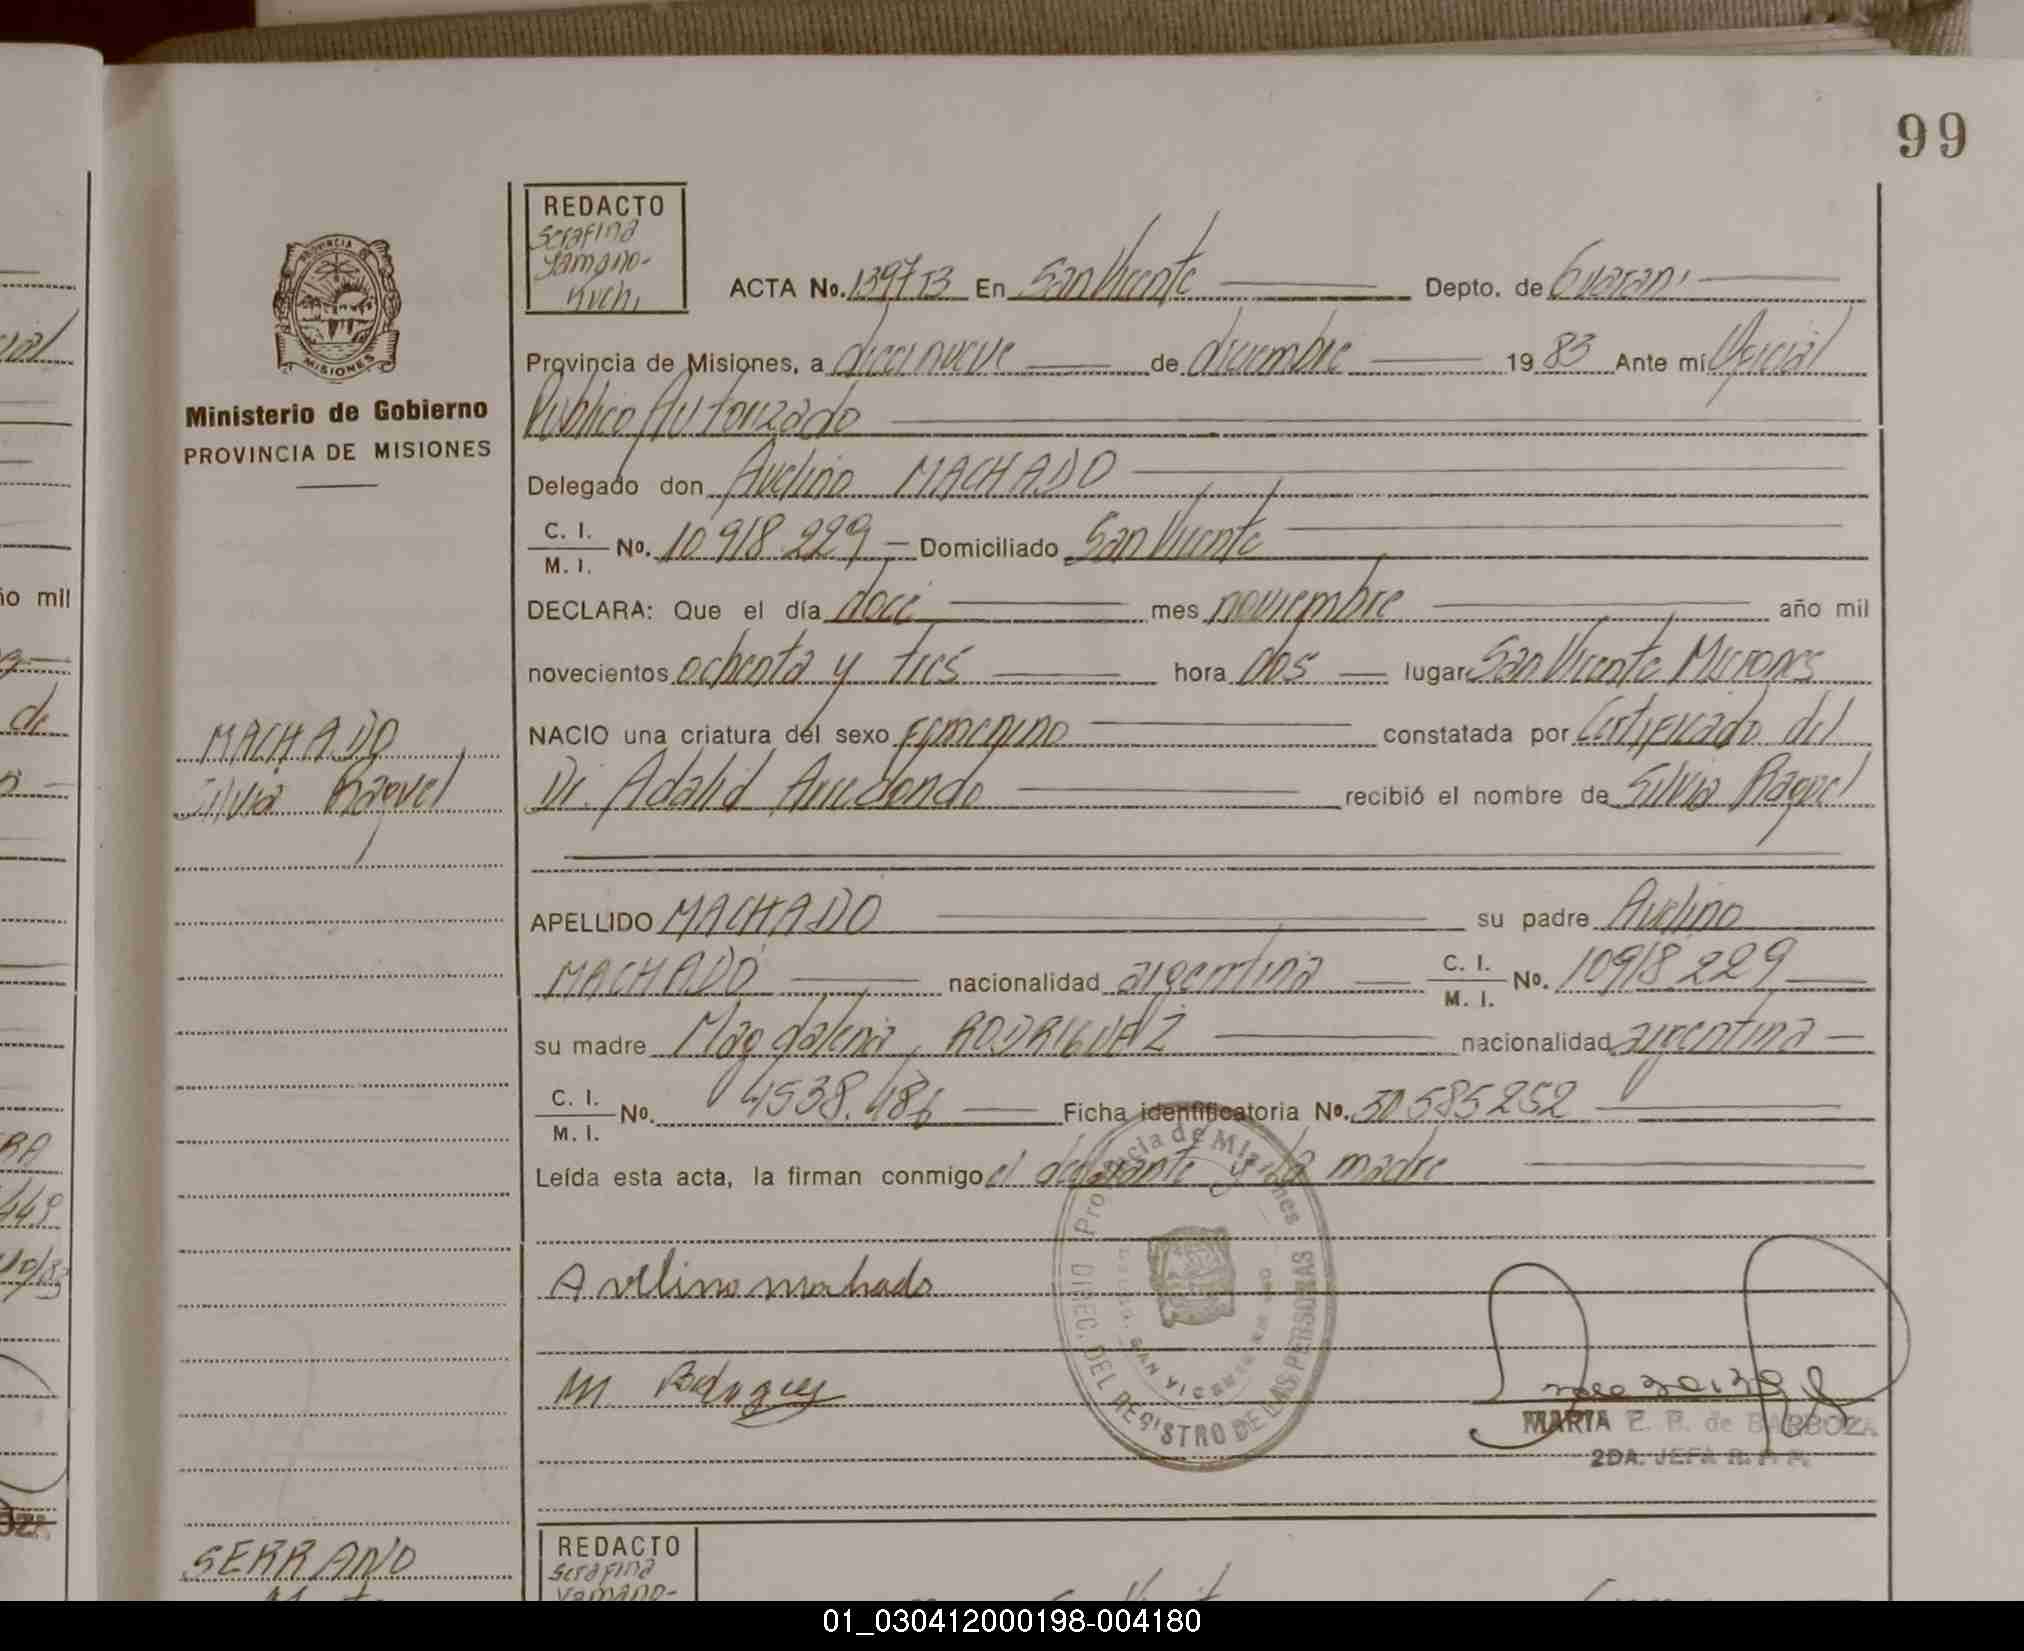 99
REDACTO
Serafina
Yamano-
Kuchi
ACTA No. 1397 T3 En San Vicente Depto. de Guarani
Provincia de Misiones, a diecinueve de diciembre 1983 Ante mí Oficial
Publico Autorizado
Delegado don Avelino MACHADO
C. I.
M. I. No. 10918.229 Domiciliado San Vicente
DECLARA: Que el día doce mes noviembre año mil
novecientos ochenta y tres hora dos lugar San Vicente Misiones
NACIO una criatura del sexo femenino constatada por Certificado del
Dr. Adalid Arredondo recibió el nombre de Silvia Raquel
APELLIDO MACHADO su padre Avelino
MACHADO nacionalidad argentina C. I.
M. I. No. 10918.229
su madre Magdalena RODRIGUEZ nacionalidad argentina
C. I.
M. I. No. 4538.486 Ficha identificatoria No. 30585252
Leída esta acta, la firman conmigo el declarante y la madre
Avelino machado
M Rodriguez
MARIA E. P. de BARBOZA
2DA. JEFA R. P. P.
Provincia de Misiones
DIREC. DEL REGISTRO DE LAS PERSONAS
SAN VICENTE
PROVINCIA DE
MISIONES
Ministerio de Gobierno
PROVINCIA DE MISIONES
MACHADO
Silvia Raquel
SERRANO
REDACTO
Serafina
Yamano-
ño mil
de
449
01_030412000198-004180